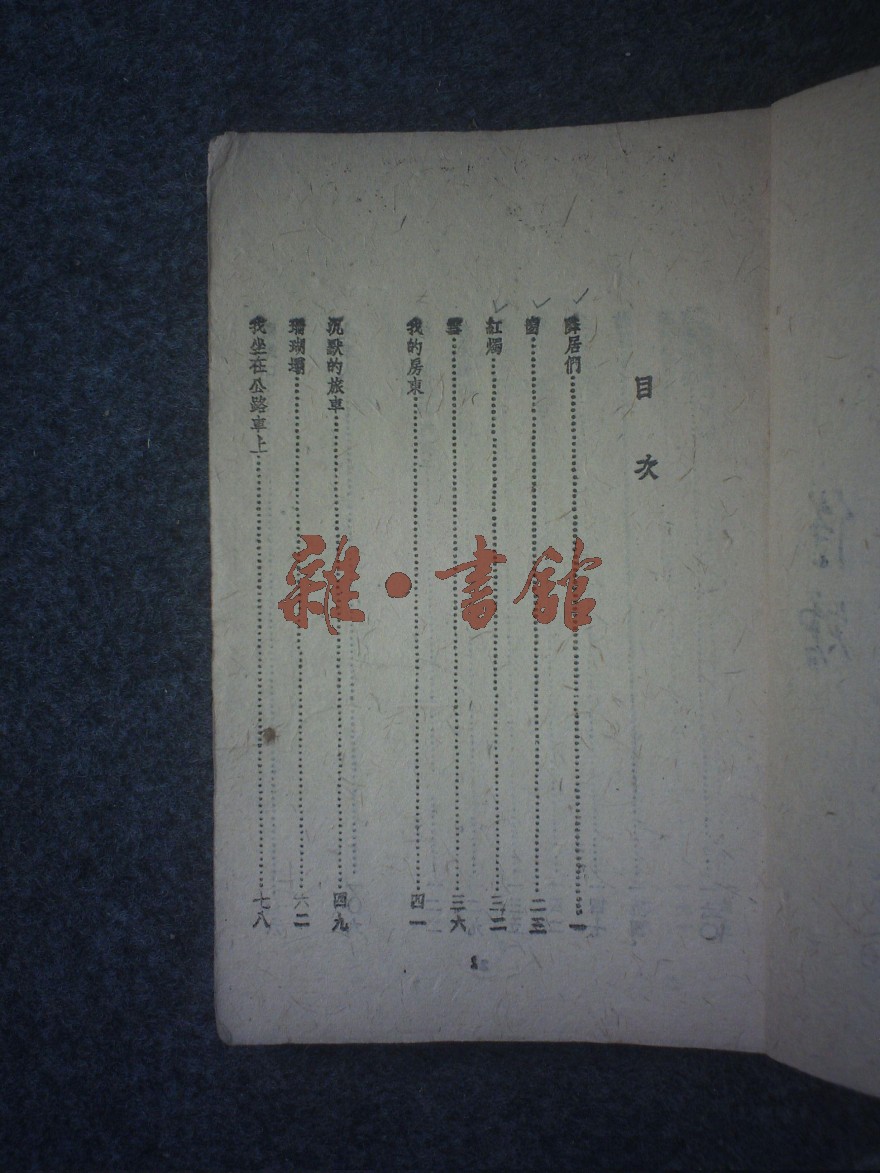 目次
鄰居們 一
窗 二三
紅燭 三二
三六
我的房東 四一
沉默的旅車 四九
珊瑚壩 六二
我坐在公路車上 七八
雜·書館